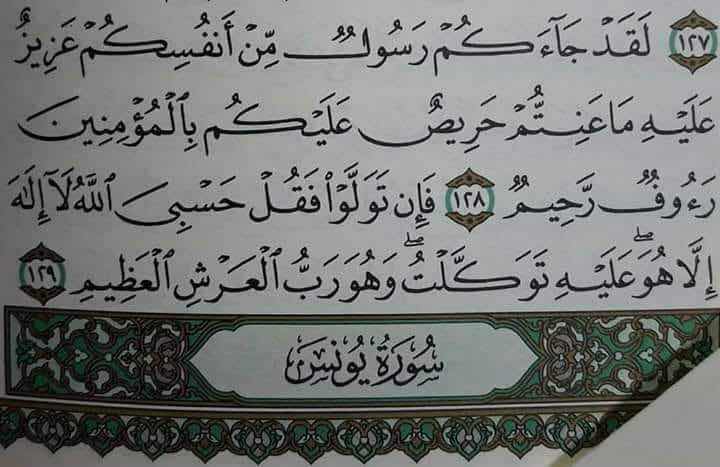 ١٢٧ لَقَدْ جَآءَكُمْ رَسُولٌ مِّنْ أَنفُسِكُمْ عَزِيزٌ
عَلَيْهِ مَا عَنِتُّمْ حَرِيصٌ عَلَيْكُم بِالْمُؤْمِنِينَ
رَءُوفٌ رَّحِيمٌ ١٢٨ فَإِن تَوَلَّوْا فَقُلْ حَسْبِيَ اللَّهُ لَآ إِلَٰهَ
إِلَّا هُوَ ۖ عَلَيْهِ تَوَكَّلْتُ ۖ وَهُوَ رَبُّ الْعَرْشِ الْعَظِيمِ ١٢٩
سُورَةُ يُونُسَ